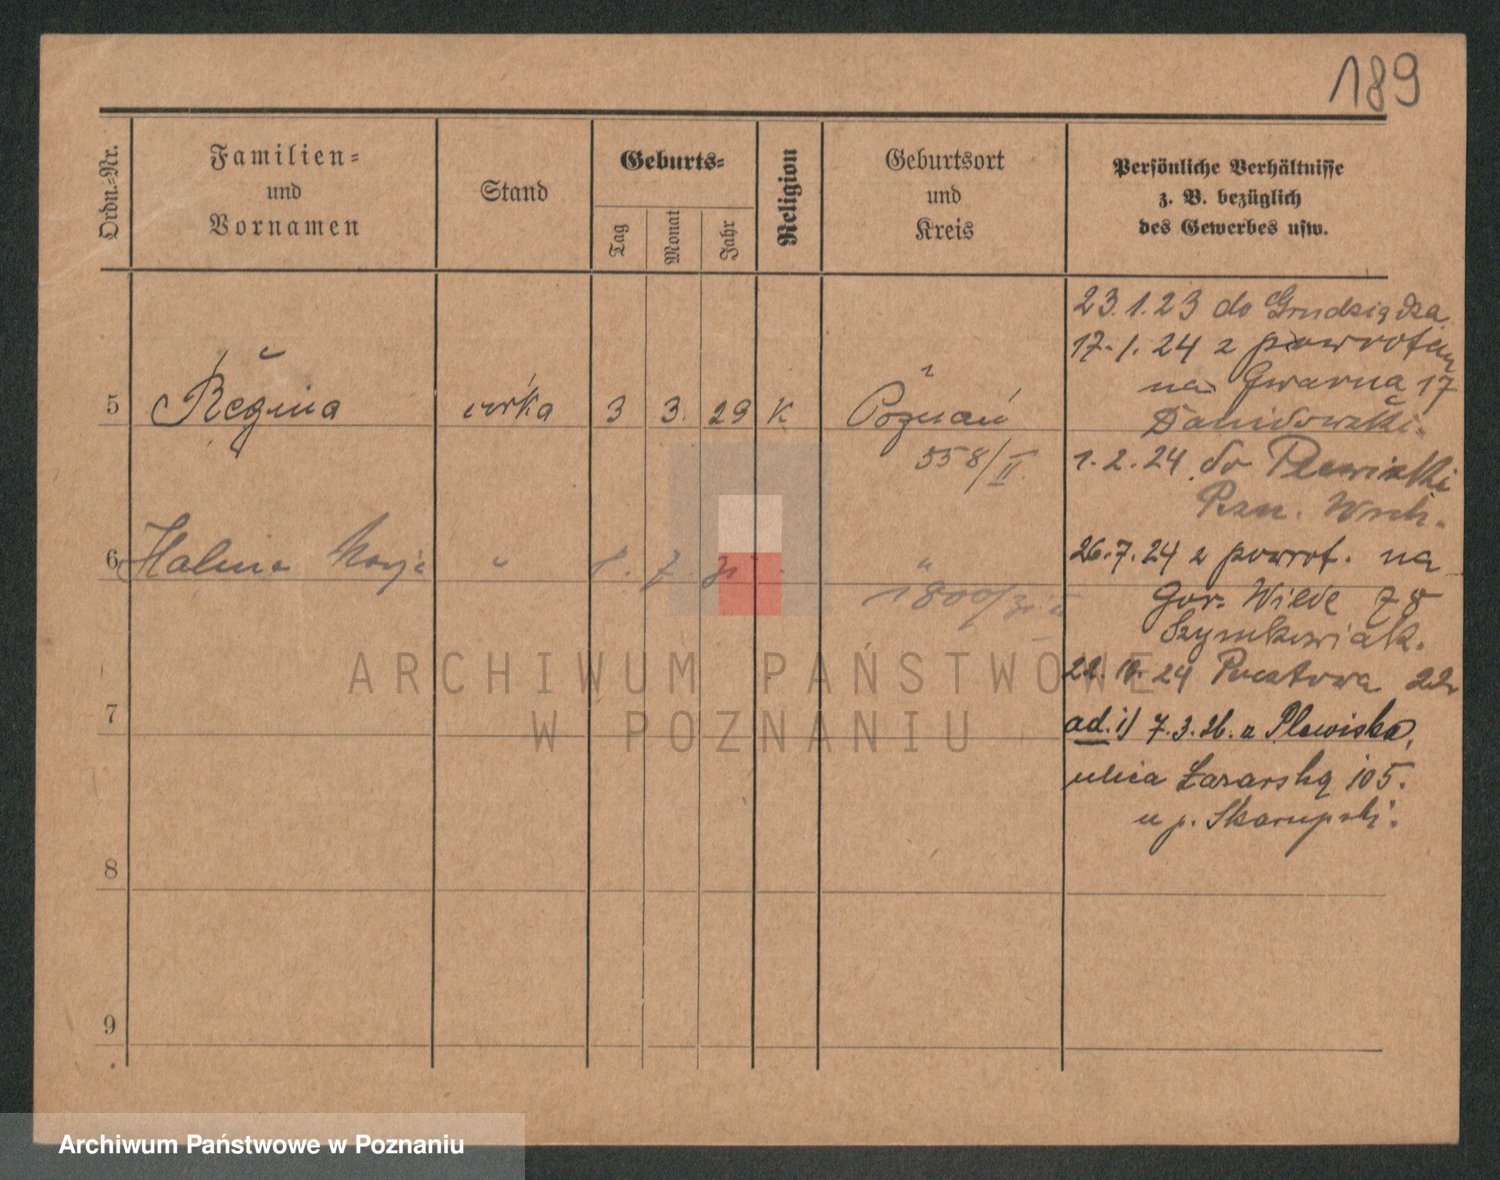 189
Ordn.-Nr.
Familien-
und
Vornamen
Stand
Geburts-
Tag
Monat
Jahr
Religion
Geburtsort
und
Kreis
Persönliche Verhältnisse
z. B. bezüglich
des Gewerbes usw.
23.1.23 do Grudziądza
17.1.24 z powrotem
na Gwarna 17
5 Regina córka 3 3. 29 K Poznań
558/II.
1.2.24 do Plewiski
Pozn. Wsch.
6 Halina " "
26.7.24 z powrot. na
Gór. Wilde 78
Szymkowiak.
22.10.24 Pocztowa 22
7
ad. 1) 7.3.26. z Plewiska,
ulica Łazarską 105.
u p. Skorupski.
8
9
ARCHIWUM PAŃSTWOWE
W POZNANIU
Archiwum Państwowe w Poznaniu